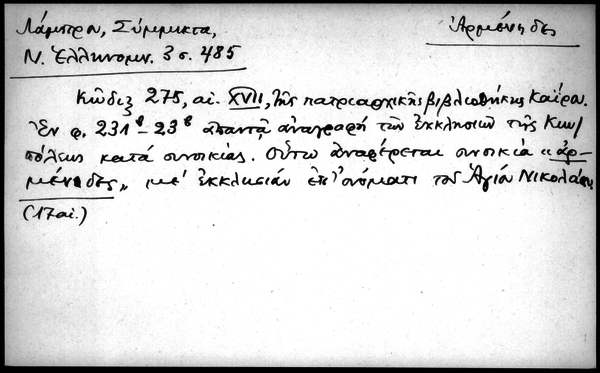 Λάμπρου, Σύμμικτα, Ἀρμένηδες
Ν. Ἑλληνομν. 3 σ. 485
Κῶδιξ 275, αἰ. XVII, τῆς πατριαρχικῆς βιβλιοθήκης Καΐρου.
Ἐν φ. 231β-23 β ἀπαντᾷ ἀναγραφὴ τῶν ἐκκλησιῶν τῆς Κων/
πόλεως κατὰ συνοικίας. Οὕτω ἀναφέρεται συνοικία «ἀρ-
μένηδες» μὲ ἐκκλησίαν ἐπ' ὀνόματι τοῦ Ἁγίου Νικολάου
(17 αἰ.)